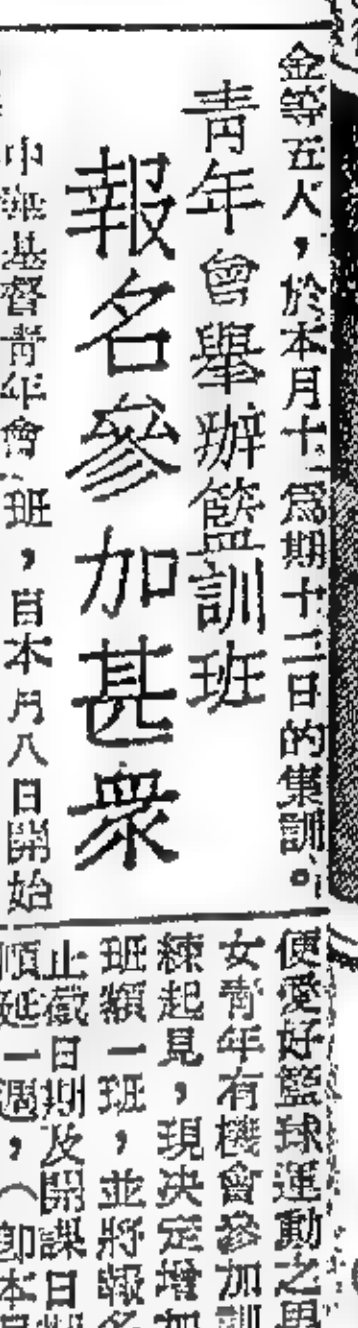 金等五人，於本月十　為期十二日的集訓。
青年會舉辦籃訓班
報名參加甚衆
中華基督青年會　班，自本月八日開始
便愛好籃球運動之男
女青年有機會參加訓
練起見，現決定增加
班額一班，並將報名
止截日期及開課日期
順延一週，（即本